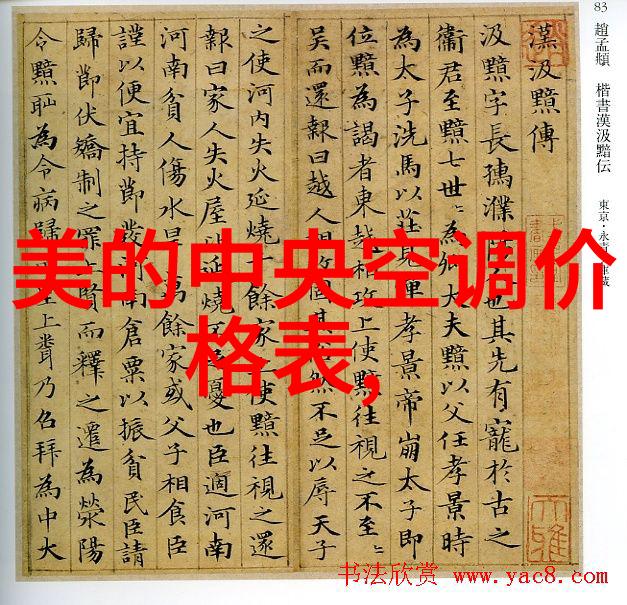 83
趙孟頫 楷書漢汲黯伝
東京・永青 蔵
漢汲黯傳
汲黯字長孺濮 也其先有寵於古之
衛君至黯七世〻為卿大夫黯以父任孝景時
為太子洗馬以莊見 孝景帝崩太子即
位黯為謁者東越相攻上使黯往視之不至〻
吳而還報曰越人相攻固其俗然不足以辱天子
之使河内失火延燒千餘家上使黯往視之還
報曰家人失火屋比延燒不足憂也臣適河南
河南貧人傷水旱萬餘家或父子相食臣
謹以便宜持節發河南倉粟以振貧民臣請
歸節伏矯制之罪上賢而釋之遷為滎陽
令黯耻為令病歸 上聞乃召拜為中大
美的中央空调价
格表,
书法欣赏 www.yac8.com